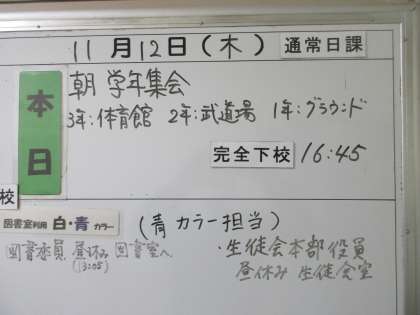 11月12日(木) 通常日課
本日
朝 学年集会
3年:体育館 2年:武道場 1年:グラウンド
完全下校 16:45
校
図書室利用 白・青 カラー (青カラー担当)
図書委員 昼休み 図書室へ
(13:05)
・生徒会本部役員
昼休み 生徒会室